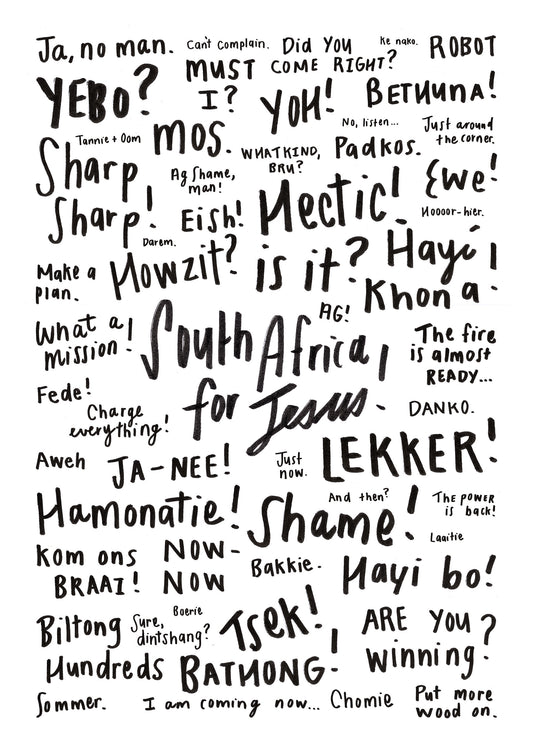 Ja, no man.
Can't Complain.
Did You
Ke nako.
ROBOT
YEBO?
MUST COME RIGHT?
I?
YOH!
BETHUNA!
Tannie + Oom
mos.
No, listen...
Just around
the corner.
Sharp,
Sharp!
Ag Shame,
man!
WHAT KIND,
BRU?
Padkos.
Ewe!
Eish!
Hectic!
Hoooor-hier.
Darem.
Make a
plan.
Howzit?
is it?
Hayi
Khona!
What a
mission!
South Africa,
for Jesus.
AG!
The fire
is almost
READY...
Fede!
Charge
everything!
DANKO.
Aweh
JA-NEE!
Just
now.
LEKKER!
Hamonatie!
And then?
THE POWER
is back!
Shame!
Laaitie
Kom ons
BRAAI!
NOW-
NOW
Bakkie.
Hayi bo!
Biltong
Sure,
dintshang?
Boerie
Tsek!
ARE YOU
winning?
Hundreds
BATHONG!
Sommer.
I am coming now...
Chomie
Put more
wood on.